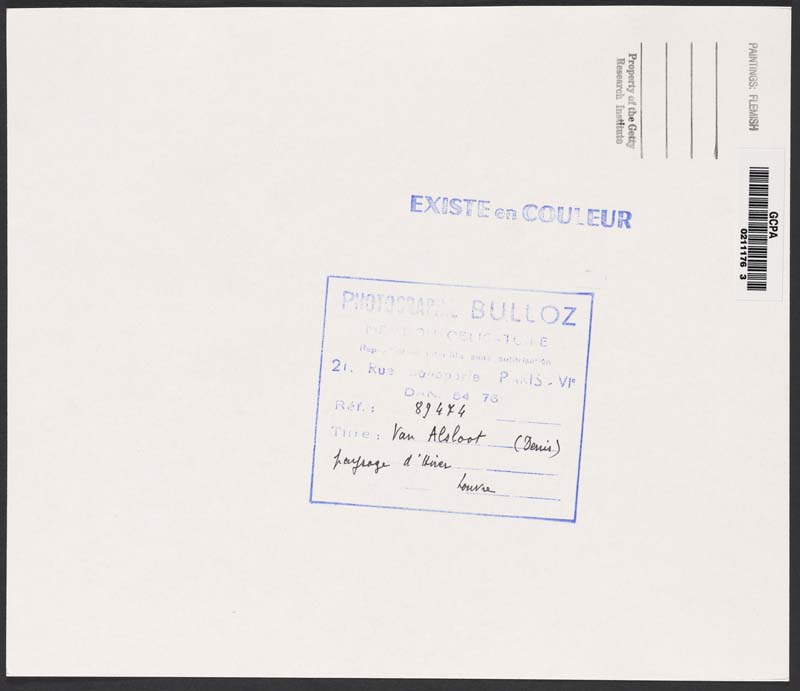 PAINTINGS: FLEMISH
Property of the Getty
Research Institute
GCPA
0211176 3
EXISTE en COULEUR
PHOTOGRAPHIE BULLOZ
MENTION OBLIGATOIRE
Reproduction interdite sans autorisation
21, Rue Bonaparte PARIS - VIe
DAN. 84 76
Réf.: 89474
Titre: Van Alsloot (Denis)
paysage d'Hiver
Louvre